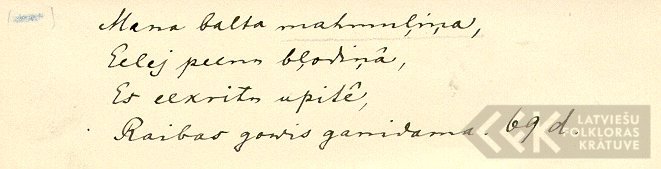 Mana balta mahmuļiņa,
Eelej peenu bļodiņâ,
Es eekritu upitê,
Raibas gowis ganidama. 69 d.
LATVIEŠU
FOLKLORAS
KRĀTUVE